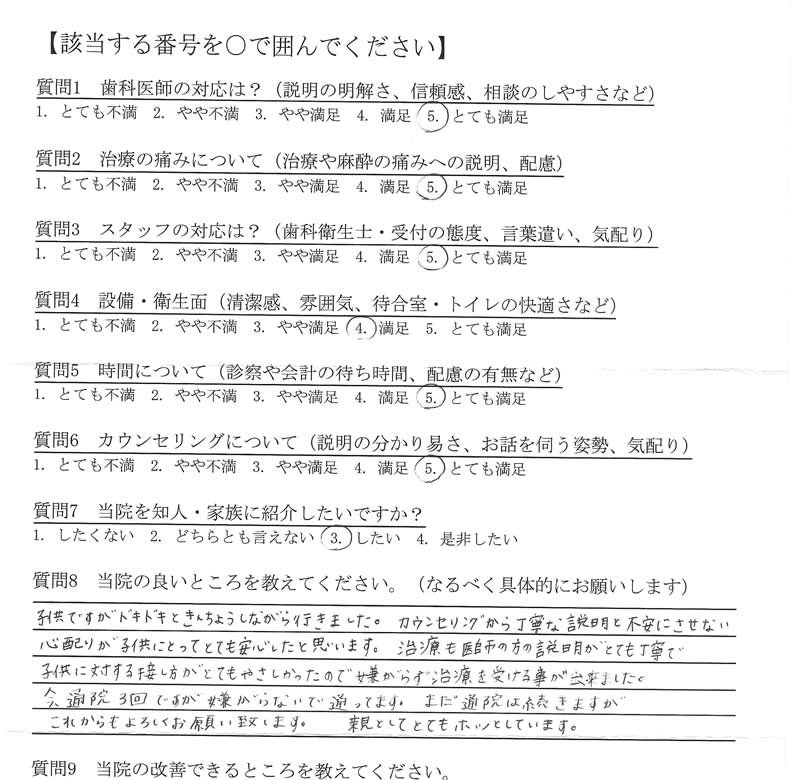 【該当する番号を○で囲んでください】
質問1 歯科医師の対応は？（説明の明解さ、信頼感、相談のしやすさなど）
1. とても不満 2. やや不満 3. やや満足 4. 満足 5. とても満足
質問2 治療の痛みについて（治療や麻酔の痛みへの説明、配慮）
1. とても不満 2. やや不満 3. やや満足 4. 満足 5. とても満足
質問3 スタッフの対応は？（歯科衛生士・受付の態度、言葉遣い、気配り）
1. とても不満 2. やや不満 3. やや満足 4. 満足 5. とても満足
質問4 設備・衛生面（清潔感、雰囲気、待合室・トイレの快適さなど）
1. とても不満 2. やや不満 3. やや満足 4. 満足 5. とても満足
質問5 時間について（診察や会計の待ち時間、配慮の有無など）
1. とても不満 2. やや不満 3. やや満足 4. 満足 5. とても満足
質問6 カウンセリングについて（説明の分かり易さ、お話を伺う姿勢、気配り）
1. とても不満 2. やや不満 3. やや満足 4. 満足 5. とても満足
質問7 当院を知人・家族に紹介したいですか？
1. したくない 2. どちらとも言えない 3. したい 4. 是非したい
質問8 当院の良いところを教えてください。（なるべく具体的にお願いします）
子供ですがドキドキときんちょうしながら行きました。カウンセリングから丁寧な説明と不安にさせない
心配りが子供にとってとても安心したと思います。治療も医師の方の説明がとても丁寧で
子供に対する接し方がとてもやさしかったので嫌がらず治療を受ける事が出来ました。
今通院3回ですが嫌がらないで通ってます。まだ通院は続きますが
これからもよろしくお願い致します。 親としてとてもホッとしています。
質問9 当院の改善できるところを教えてください。